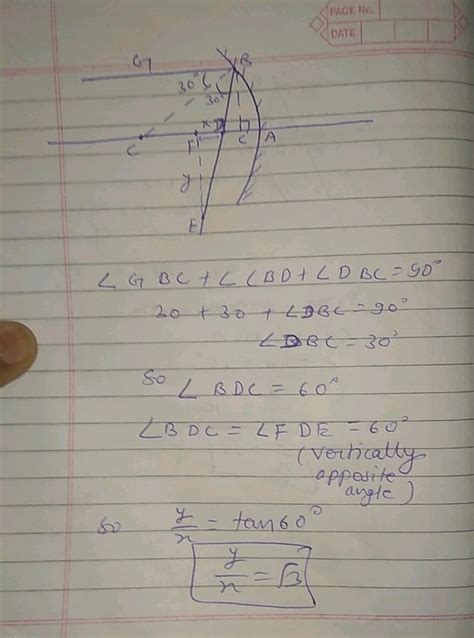 PAGE No.
DATE
G
B
30°
30°
x
D
C
F
C
A
y
E
∠GBC + ∠CBD + ∠DBC = 90°
30 + 30 + ∠DBC = 90°
∠DBC = 30°
So ∠BDC = 60°
∠BDC = ∠FDE = 60°
(Vertically
opposite
angle)
so y/x = tan60°
y/x = √3